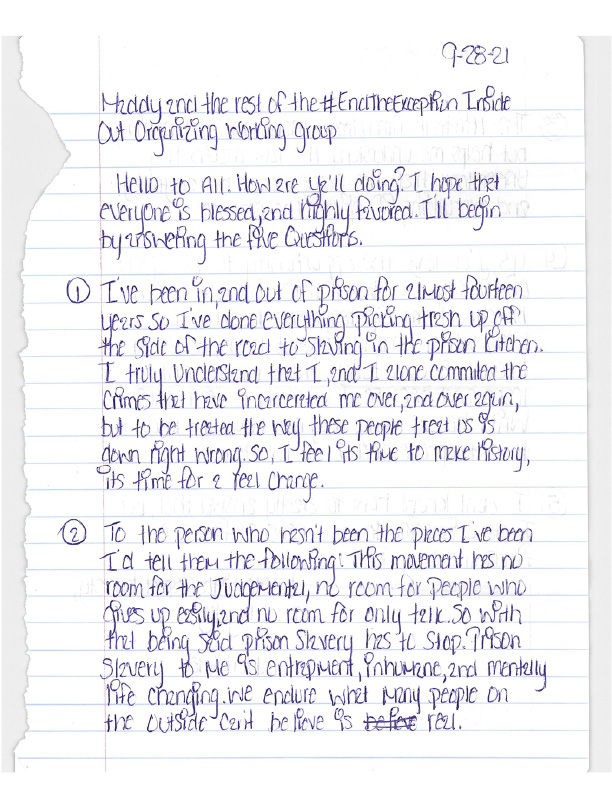 9-28-21
Maddy and the rest of the #EndTheException Inside
Out Organizing Working group
Hello to All. How are ya'll doing? I hope that
everyone is blessed, and highly favored. I'll begin
by answering the five Questions.
① I've been in, and out of prison for almost fourteen
years so I've done everything picking trash up off
the side of the road to slaving in the prison kitchen.
I truly Understand that I, and I alone commited the
crimes that have incarcerated me over, and over again,
but to be treated the way these people treat us is
down right wrong. So, I feel its time to make history,
its time for a real change.
② To the person who hasn't been the places I've been
I'd tell them the following: This movement has no
room for the Judgemental, no room for people who
gives up easily, and no room for only talk. So with
that being said prison slavery has to stop. Prison
Slavery to Me is entrapment, inhumane, and mentally
life changing. We endure what Many people on
the outside can't believe is real.